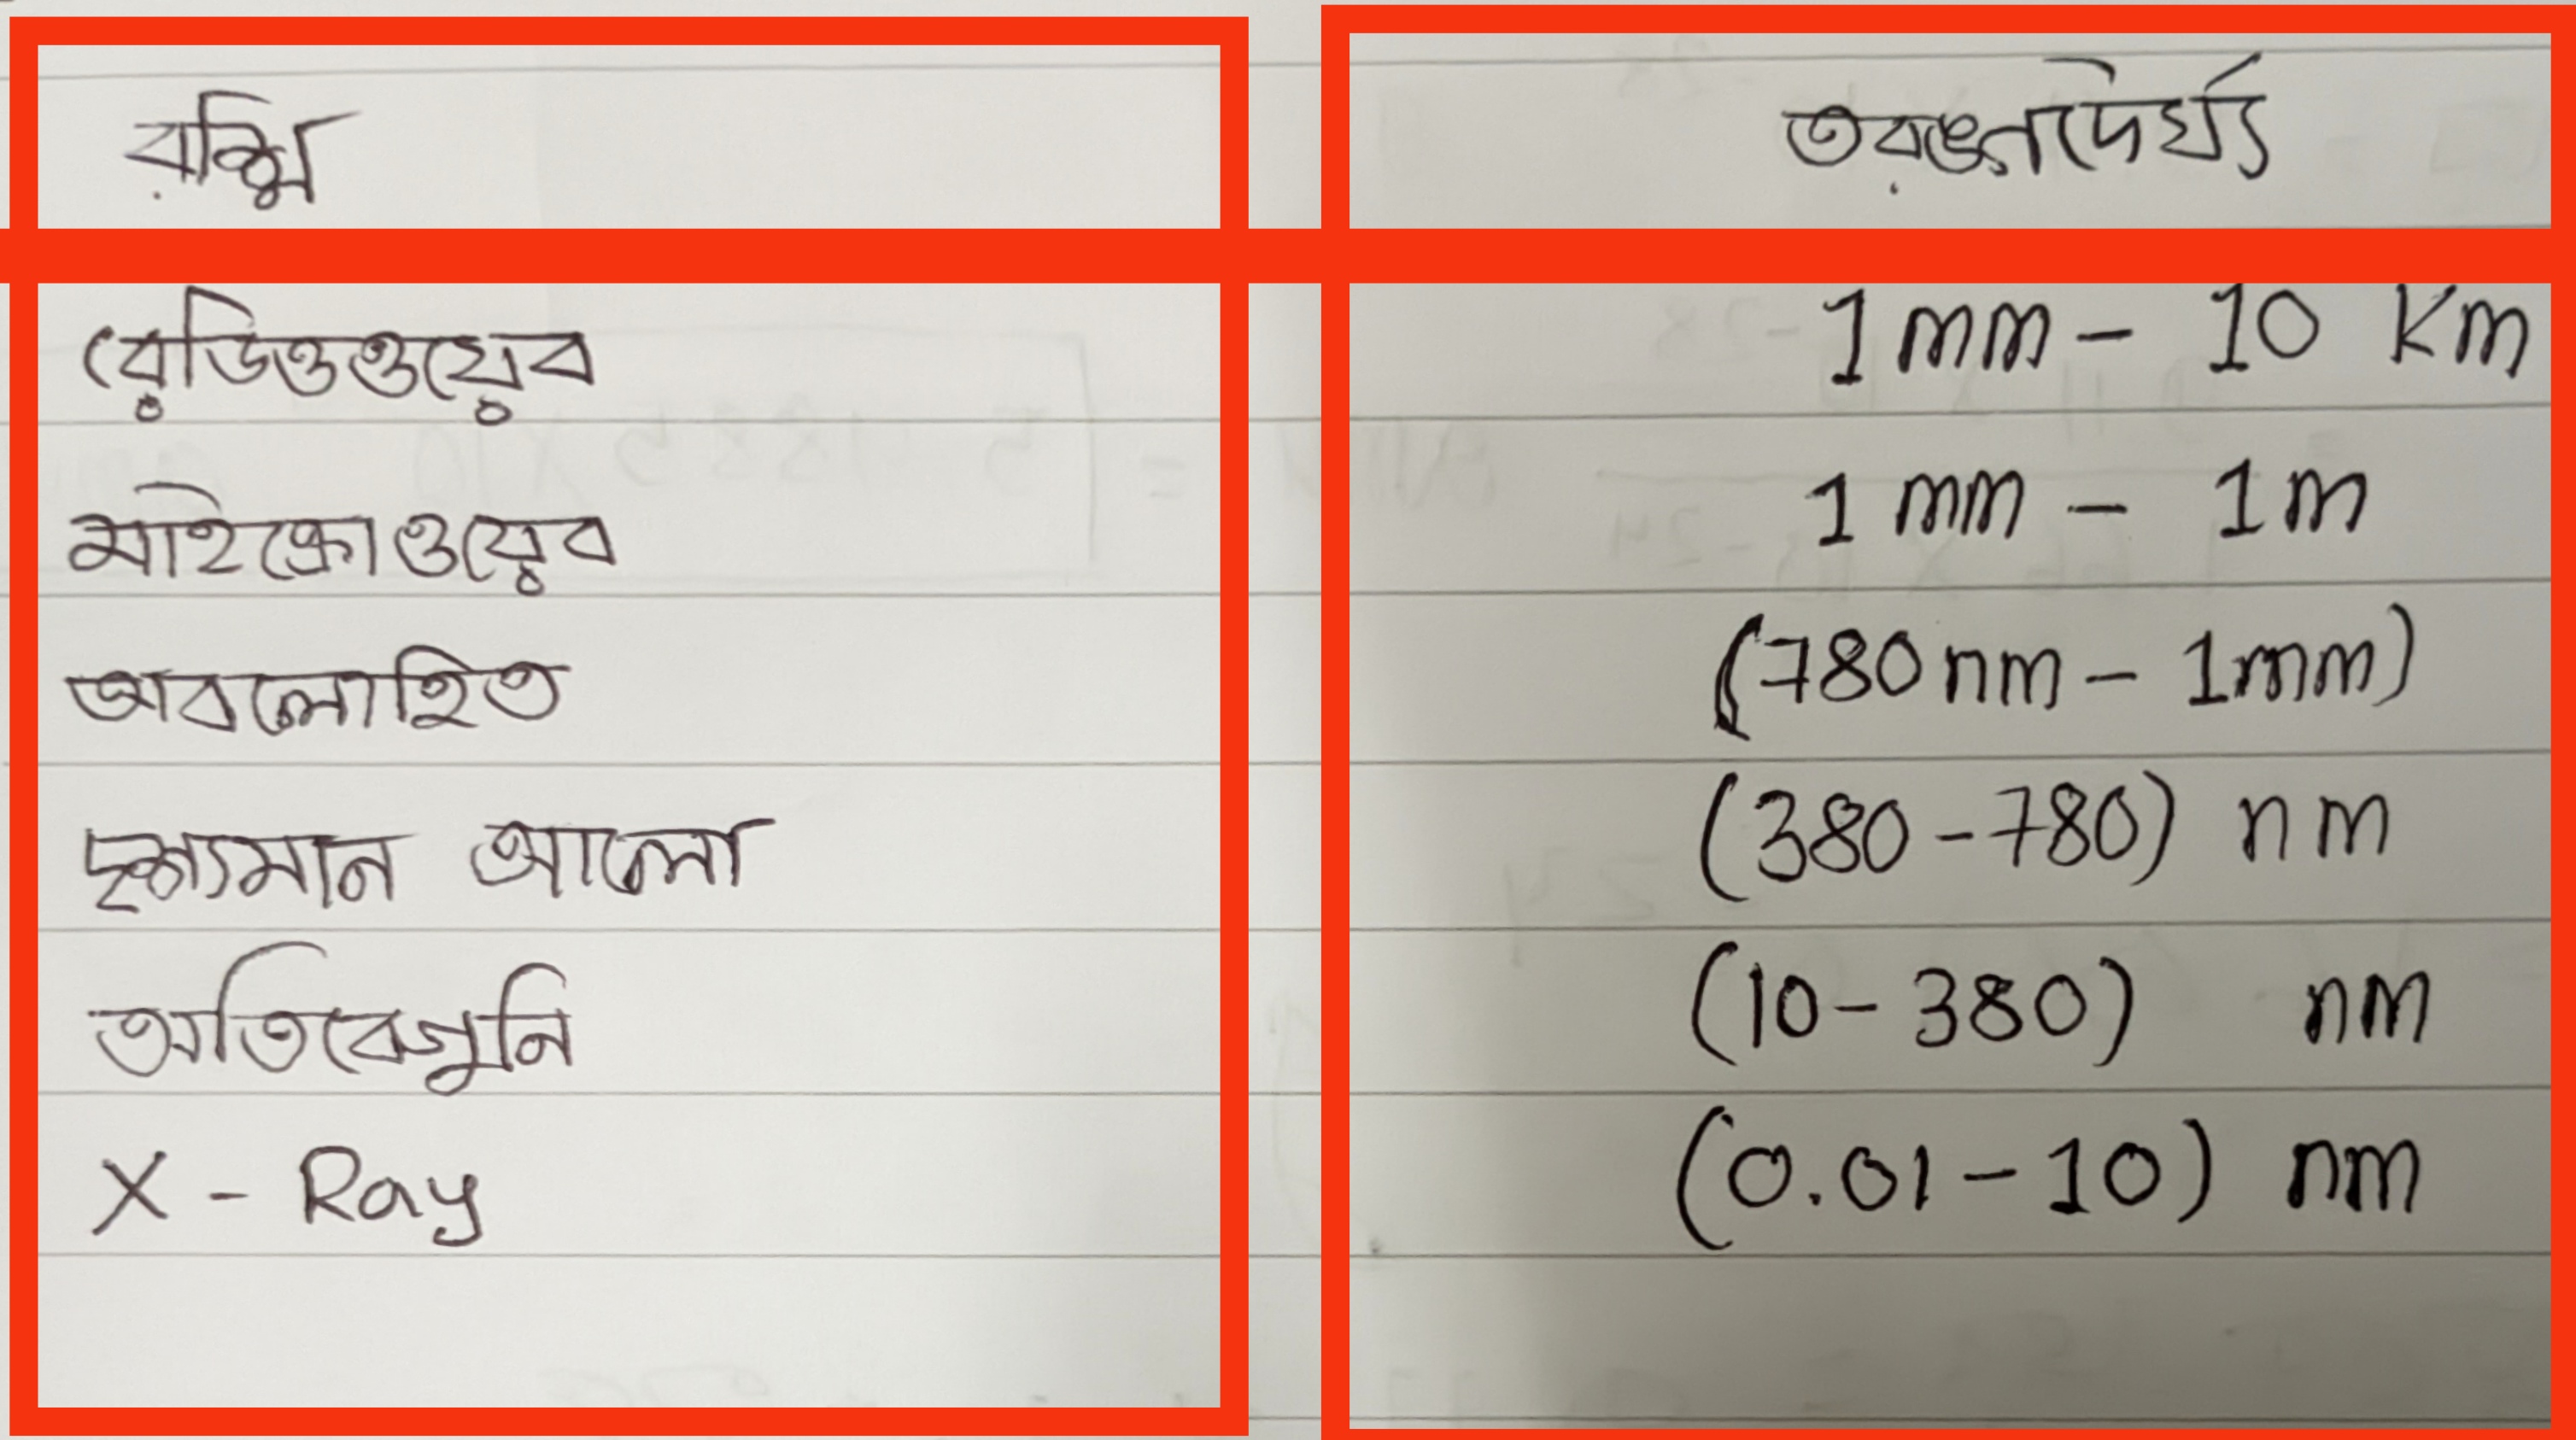 রশ্মি তরঙ্গদৈর্ঘ্য
রেডিওওয়েব 1 mm - 10 Km
মাইক্রোওয়েব 1 mm - 1 m
অবলোহিত (780 nm - 1 mm)
দৃশ্যমান আলো (380 - 780) nm
অতিবেগুনি (10 - 380) nm
X - Ray (0.01 - 10) nm